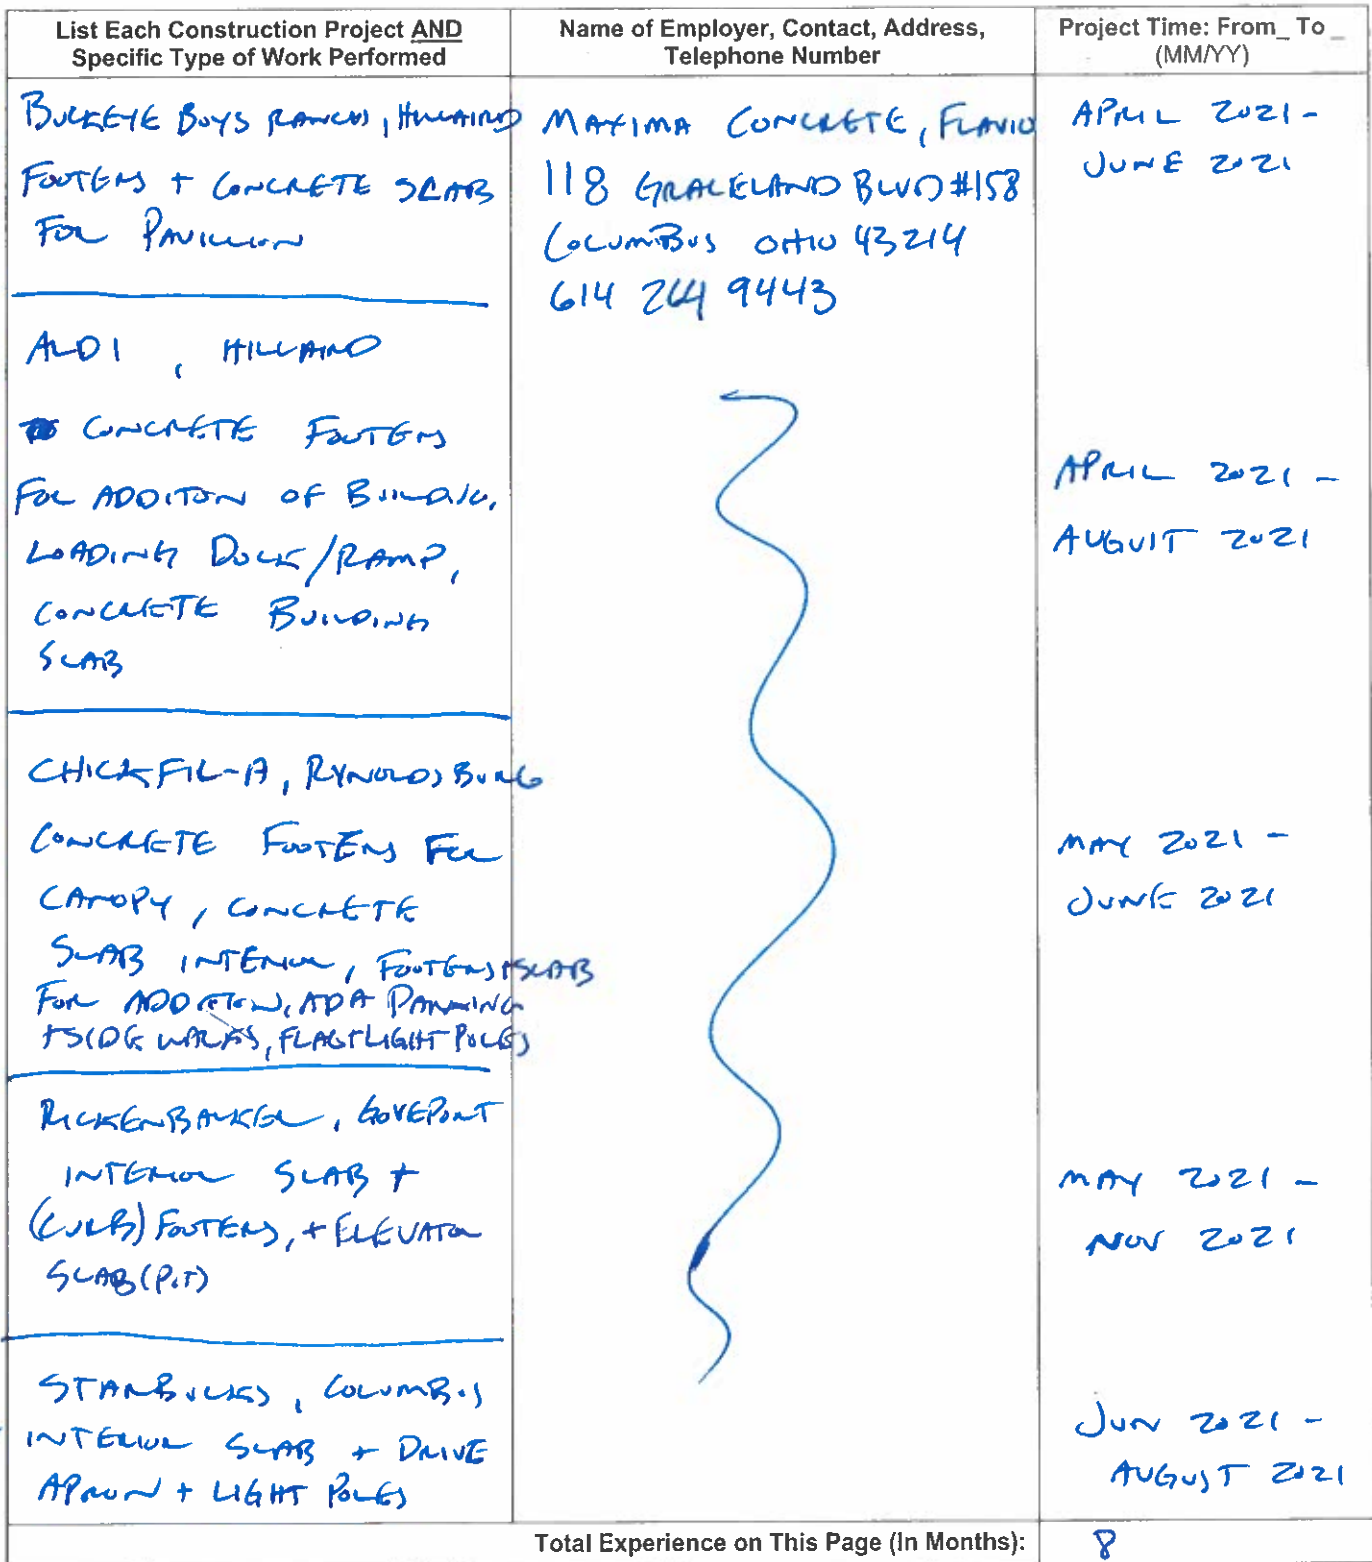 List Each Construction Project AND
Specific Type of Work Performed
Name of Employer, Contact, Address,
Telephone Number
Project Time: From_ To _
(MM/YY)
BUCKEYE BOYS RANCH, HILLIARD
FOOTERS + CONCRETE SLAB
FOR PAVILLION
MAXIMA CONCRETE, FLAVIO
118 GRACELAND BLVD #158
COLUMBUS OHIO 43214
614 264 9443
APRIL 2021 -
JUNE 2021
ALDI, HILLIARD
CONCRETE FOOTERS
FOR ADDITON OF BUILDING,
LOADING DOCK/RAMP,
CONCRETE BUILDING
SLAB
APRIL 2021 -
AUGUST 2021
CHICKFIL-A, RYNOLDSBURG
CONCRETE FOOTERS FOR
CANOPY, CONCRETE
SLAB INTERIOR, FOOTERS+SLAB
FOR ADDITION, ADA PARKING
+SIDEWALKS, FLAG+LIGHT POLES
MAY 2021 -
JUNE 2021
RICKENBACKER, GOVEPORT
INTERIOR SLAB +
(CURB) FOOTERS, + ELEVATOR
SLAB (PIT)
MAY 2021 -
NOV 2021
STARBUCKS, COLUMBUS
INTERIOR SLAB + DRIVE
APRON + LIGHT POLES
JUN 2021 -
AUGUST 2021
Total Experience on This Page (In Months):
8